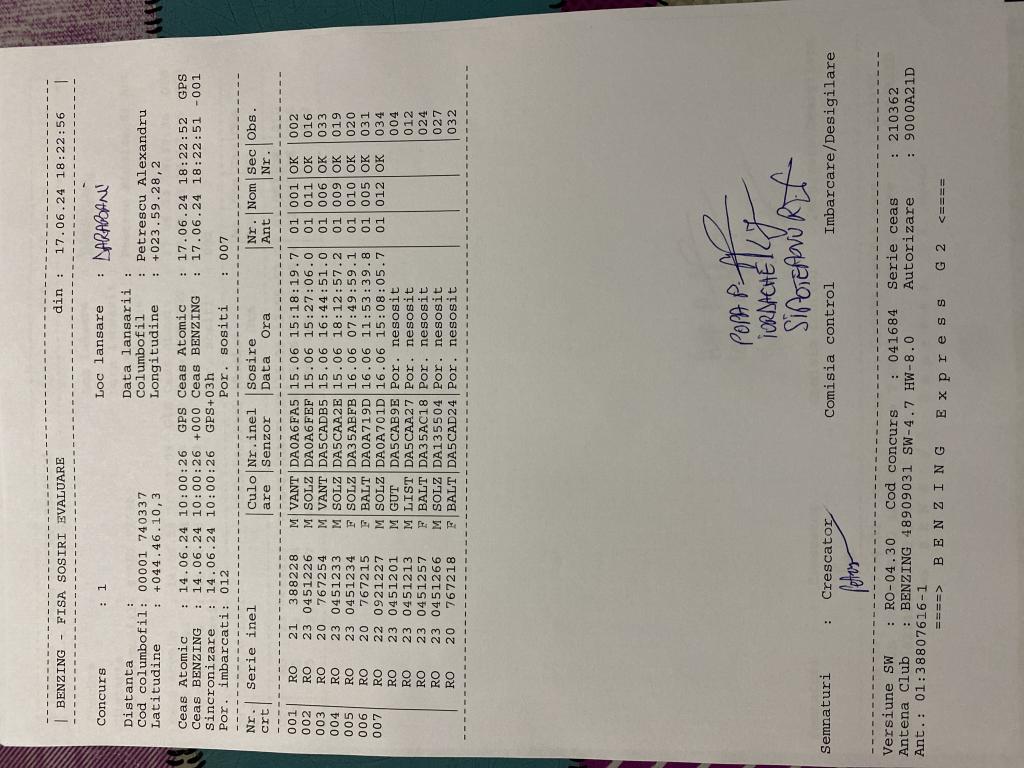 | BENZING - FISA SOSIRI EVALUARE din : 17.06.24 18:22:56 |
Concurs : 1 Loc lansare : DARABANI
Distanta : Data lansarii :
Cod columbofil: 00001 740337 Columbofil : Petrescu Alexandru
Latitudine : +044.46.10,3 Longitudine : +023.59.28,2
Ceas Atomic : 14.06.24 10:00:26 GPS Ceas Atomic : 17.06.24 18:22:52 GPS
Ceas BENZING : 14.06.24 10:00:26 +000 Ceas BENZING : 17.06.24 18:22:51 -001
Sincronizare : 14.06.24 10:00:26 GPS+03h
Por. imbarcati: 012 Por. sositi : 007
Nr.| Serie inel |Culo|Nr.inel |Sosire |Nr.|Nom|Sec|Obs.
crt| |are |Senzor |Data Ora |Ant| |Nr.|
001| RO 21 388228 M|VANT|DA0A6FA5|15.06 15:18:19.7|01|001|OK |002
002| RO 23 0451226 M|SOLZ|DA0A6FEF|15.06 15:27:06.0|01|011|OK |016
003| RO 20 767254 M|VANT|DA5CADB5|15.06 16:44:51.0|01|006|OK |033
004| RO 23 0451233 M|SOLZ|DA5CAA2E|15.06 18:12:57.2|01|009|OK |019
005| RO 23 0451234 F|SOLZ|DA35AEFB|16.06 07:49:59.1|01|010|OK |020
006| RO 20 767215 F|BALT|DA0A719D|16.06 11:53:39.8|01|005|OK |031
007| RO 22 0921227 M|SOLZ|DA0A701D|16.06 15:08:05.7|01|012|OK |034
RO 23 0451201 M|GUT |DA5CAB9E|Por. nesosit |004
RO 23 0451213 M|LIST|DA5CAA27|Por. nesosit |012
RO 23 0451257 F|BALT|DA35AC18|Por. nesosit |024
RO 23 0451266 M|SOLZ|DA135504|Por. nesosit |027
RO 20 767218 F|BALT|DA5CAD24|Por. nesosit |032
POPA P.
IORDACHE
Semnaturi : Crescator Comisia control Imbarcare/Desigilare
Versiune SW : RO-04.30 Cod concurs : 041684 Serie ceas : 210362
Antena Club : BENZING 48909031 SW-4.7 HW-8.0 Autorizare : 9000A21D
Ant.: 01:38807616-1
====> B E N Z I N G E x p r e s s G 2 <====